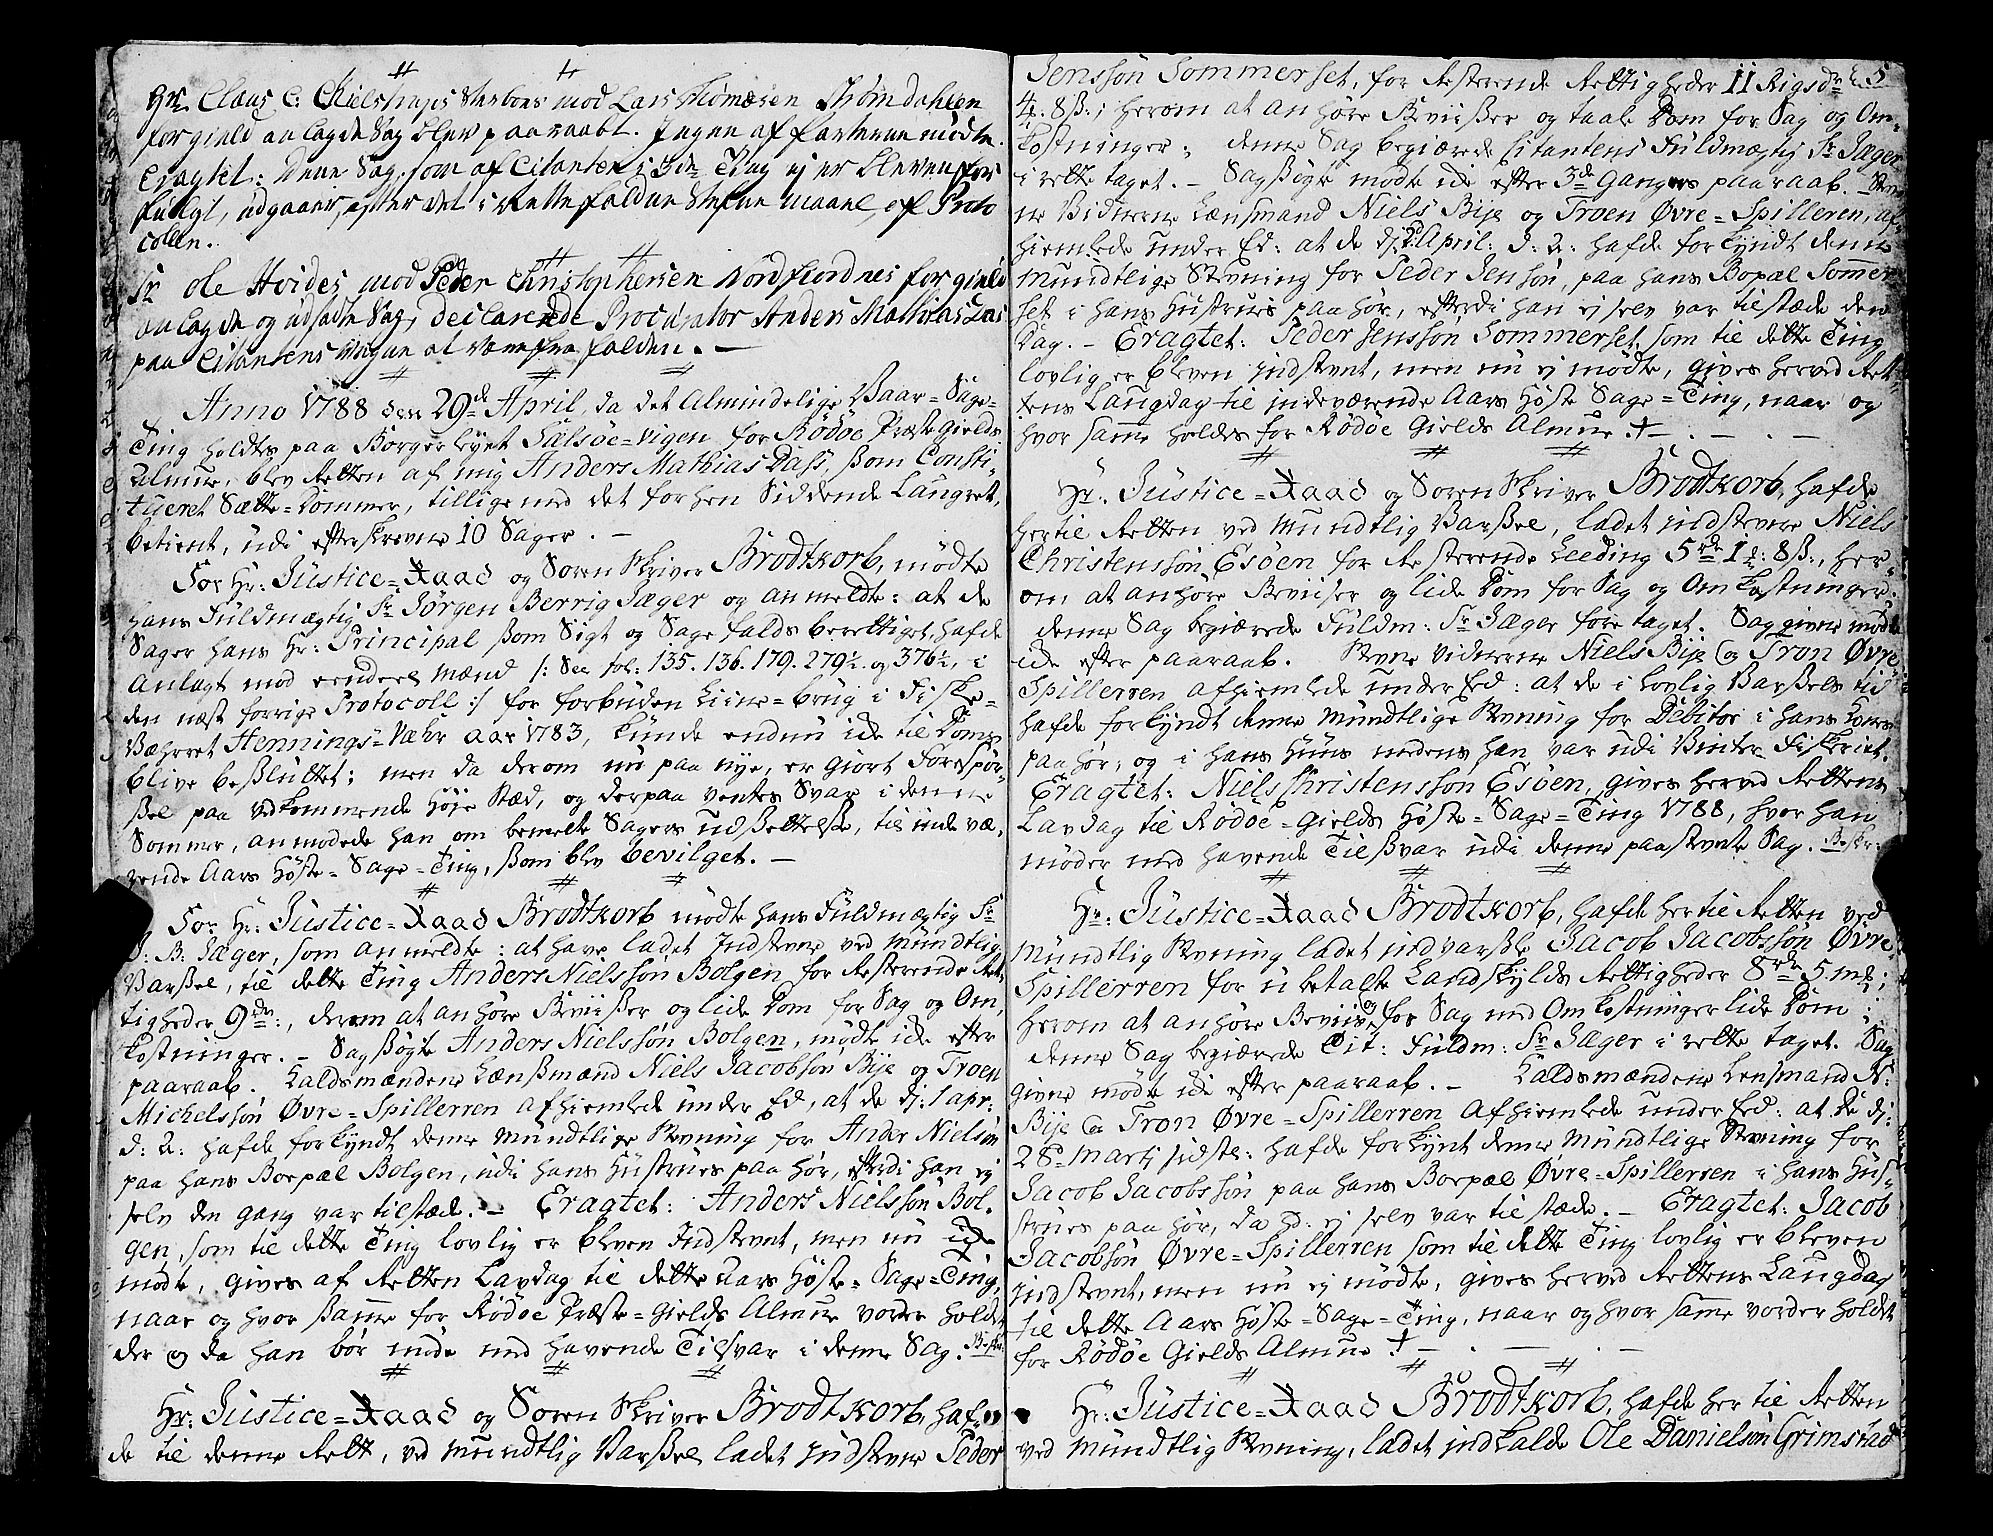 Hr. Claus C: Kielstrups Sterboes mod Lars Thomæsen Strømdahlen
for gield anlagde Sag blev paaraabt. Ingen af Parterne mødte.
Eragtet: Denne Sag, som af Citanten i 3de Ting ej er bleven for
fulgt, udgaaer, efter det i Rette faldne Stefne maael, af Proto
collen.
Sr. Ole Hvides mod Peder Christophersen Nordfiordnes for gield
anlagde og udsadte Sag, declarerede Procurator Anders Mathias Dass
paa Citantens Vegne at være frafalden. —
Anno 1788 den 29de April, da det Almindelige Vaar-Sage-
Ting holdtes paa Borgerleyet Sælsøe-Vigen for Rödöe Præste Gields
Almue, blev Retten af mig Anders Mathias Dass, ßom Consti,
tueret Sætte-Dommer, tillige med det forhen Siddende Laugret,
betient, udi efterskrevne 10 Sager. —
For Hr: Justice-Raad og Soren Skriver Brodtkorb, mødte
hans Fuldmægtig Sr. Jørgen Berrig Jæger og anmeldte: at de
Sager hans Hr: Principal ßom Sigt og Sage falds berettiget, hafde
anlagt mod eendeel mænd /: See fol: 135. 136. 179. 279½ og 376½, i
den næst forrige Protocoll :/ for forbuden Liine-brug i Fiske-
Væhret Hennings-Væhr aar 1783, kunde endnu ide til Doms
blive beßluttet; men da derom nu paa nye, er giort Forespør-
ßel paa vedkommende Høje Stæd, og derpaa ventes Svar i denne
Sommer, anmodede han om bemelte Sagers Udßettelse, til inde væ,
rende Aars Høste-Sage-Ting, ßom blev bevilget. —
For Hr: Justice-Raad Brodtkorb mødte hans Fuldmægtig Sr.
J: B: Jæger, som anmeldte: at have ladet Indstevne ved Mundtlig
Varßel, til dette Ting Anders Nielssön Bolgen for Resterende Ret,
tigheder 9 rdr:, derom at anhøre Beviißer og lide Dom for Sag og Om,
kostninger. — Sagßøgte Anders Nielssön Bolgen, mødte ide efter
paaraab. Kaldsmændene Lænßmand Niels Jacobsön Bije og Troen
Michelssön Øvre-Spillerren afhiemlede under Ed, at de dj: 1 apr:
d: A: hafde forkyndt denne Mundtlige Stevning for Anders Nielsön
paa hans Boepæl Bolgen, udi hans Hustrues paa hør, efterdi han ej
selv den gang var tilstæde. — Eragtet: Anders Nielssön Bol-
gen, som til dette Ting lovlig er bleven Indstevnt, men nu ide
mødte, gives af Retten Lavdag til dette Aars Høste-Sage-Ting,
naar og hvor ßamme for Rödöe Præste-Gields Almue vorder holdt
der og da han bør møde med havende Tilsvar i denne Sag.
Hr: Justice-Raad og Soren Skriver Brodtkorb, haf-
de til denne Rett, ved Mundtlig Varßel ladet indstevne Peder
5
Jenssön Sommerset, for Resterende Rettigheder 11 Rigsdr.
4: 8ß:, herom at anhöre Beviißer og taale Dom for Sag og Om,
kostninger; denne Sag begiærede Citantens Fuldmægtig Sr. Jæger
i rette taget. — Sagßögte mødte ide efter 3de Ganges paaraab. — Stev
ne Vidnerne Lænsmand Niels Bije og Troen Øvre-Spilleren, af,
hiemlede under Ed: at de dj: 2 April: d: A: hafde forkyndt denne
Mundtlige Stevning for Peder Jensön, paa hans Bopæl Sommer
set i hans Hustrues paa hør, efterdi han ej selv var tilstæde den
Dag. — Eragtet: Peder Jenssön Sommerset, som til dette Ting
lovlig er bleven indstevnt, men nu ej mødte, gives herved Ret-
tens Laugdag til indeværende Aars Höste Sage-Ting, naar og
hvor samme holdes for Rödöe Gields Almue.
Hr: Justice-Raad og Soren Skriver Brodtkorb, hafde
hertil Retten ved Mundtlig Varßel, ladet indstevne Niels
Christenssön Esöen for Resterende Leeding 5 rdr 1: 8ß:, her,
om at anhöre Beviiser og lide Dom for Sag og Omkostninger.
denne Sag begiærede Fuldm: Sr. Jæger fore taget. Saggivne mødte
ide efter paaraab. Stevne Vidnerne Niels Bije og Tron Øvre
Spillerren afhiemlede under Ed: at de i Lovlig Varßels tid
hafde forkyndt denne Mundtlige Stevning for Debitor i hans Kones
paa hør, og i hans Huus medens han var udi Vinter Fiskeriet.
Eragtet: Niels Christenssön Esöen, gives herved Rettens
Lavdag til Rödöe-Gields Høste-Sage-Ting 1788, hvor han
møder med havende Tilßvar udi denne paastevnte Sag. Beskr:
Hr: Justice-Raad Brodtkorb, hafde hertil Retten ved
Mundtlig Stevning ladet indvarßle Jacob Jacobssön Øvre,
Spillerren for ubetalte Landskylds Rettigheder 8 rdr 5 mk;
herom at anhøre Beviis, og for Sag med Omkostninger lide Dom:
denne Sag begiærede Cit: Fuldm: Sr. Jæger i rette taget. Sag
givne mødte ide efter paaraab. — Kaldsmændene Lensmand N:
Bije og Tron Øvre-Spillerren Afhiemlede under Ed: at de dj:
28 Martj sidstl: hafde forkynt denne Mundtlige Stevning for
Jacob Jacobssön paa hans Boepæl Øvre-Spillerren i hans Hu-
strues paa hør, da hd: ej selv var tilstæde. — Eragtet: Jacob
Jacobsön Øvre-Spillerren som til dette Ting lovlig er bleven
indstevnt, men nu ej mødte, gives herved Rettens Laugdag
til dette Aars Høste-Sage-Ting, naar og hvor samme vorder holdet
for Rödöe Gields Almue
Hr: Justice-Raad Brodtkorb, hafde her til Retten
ved Mundtlig Stevning, ladet indkalde Ole Danielsön Grimstad